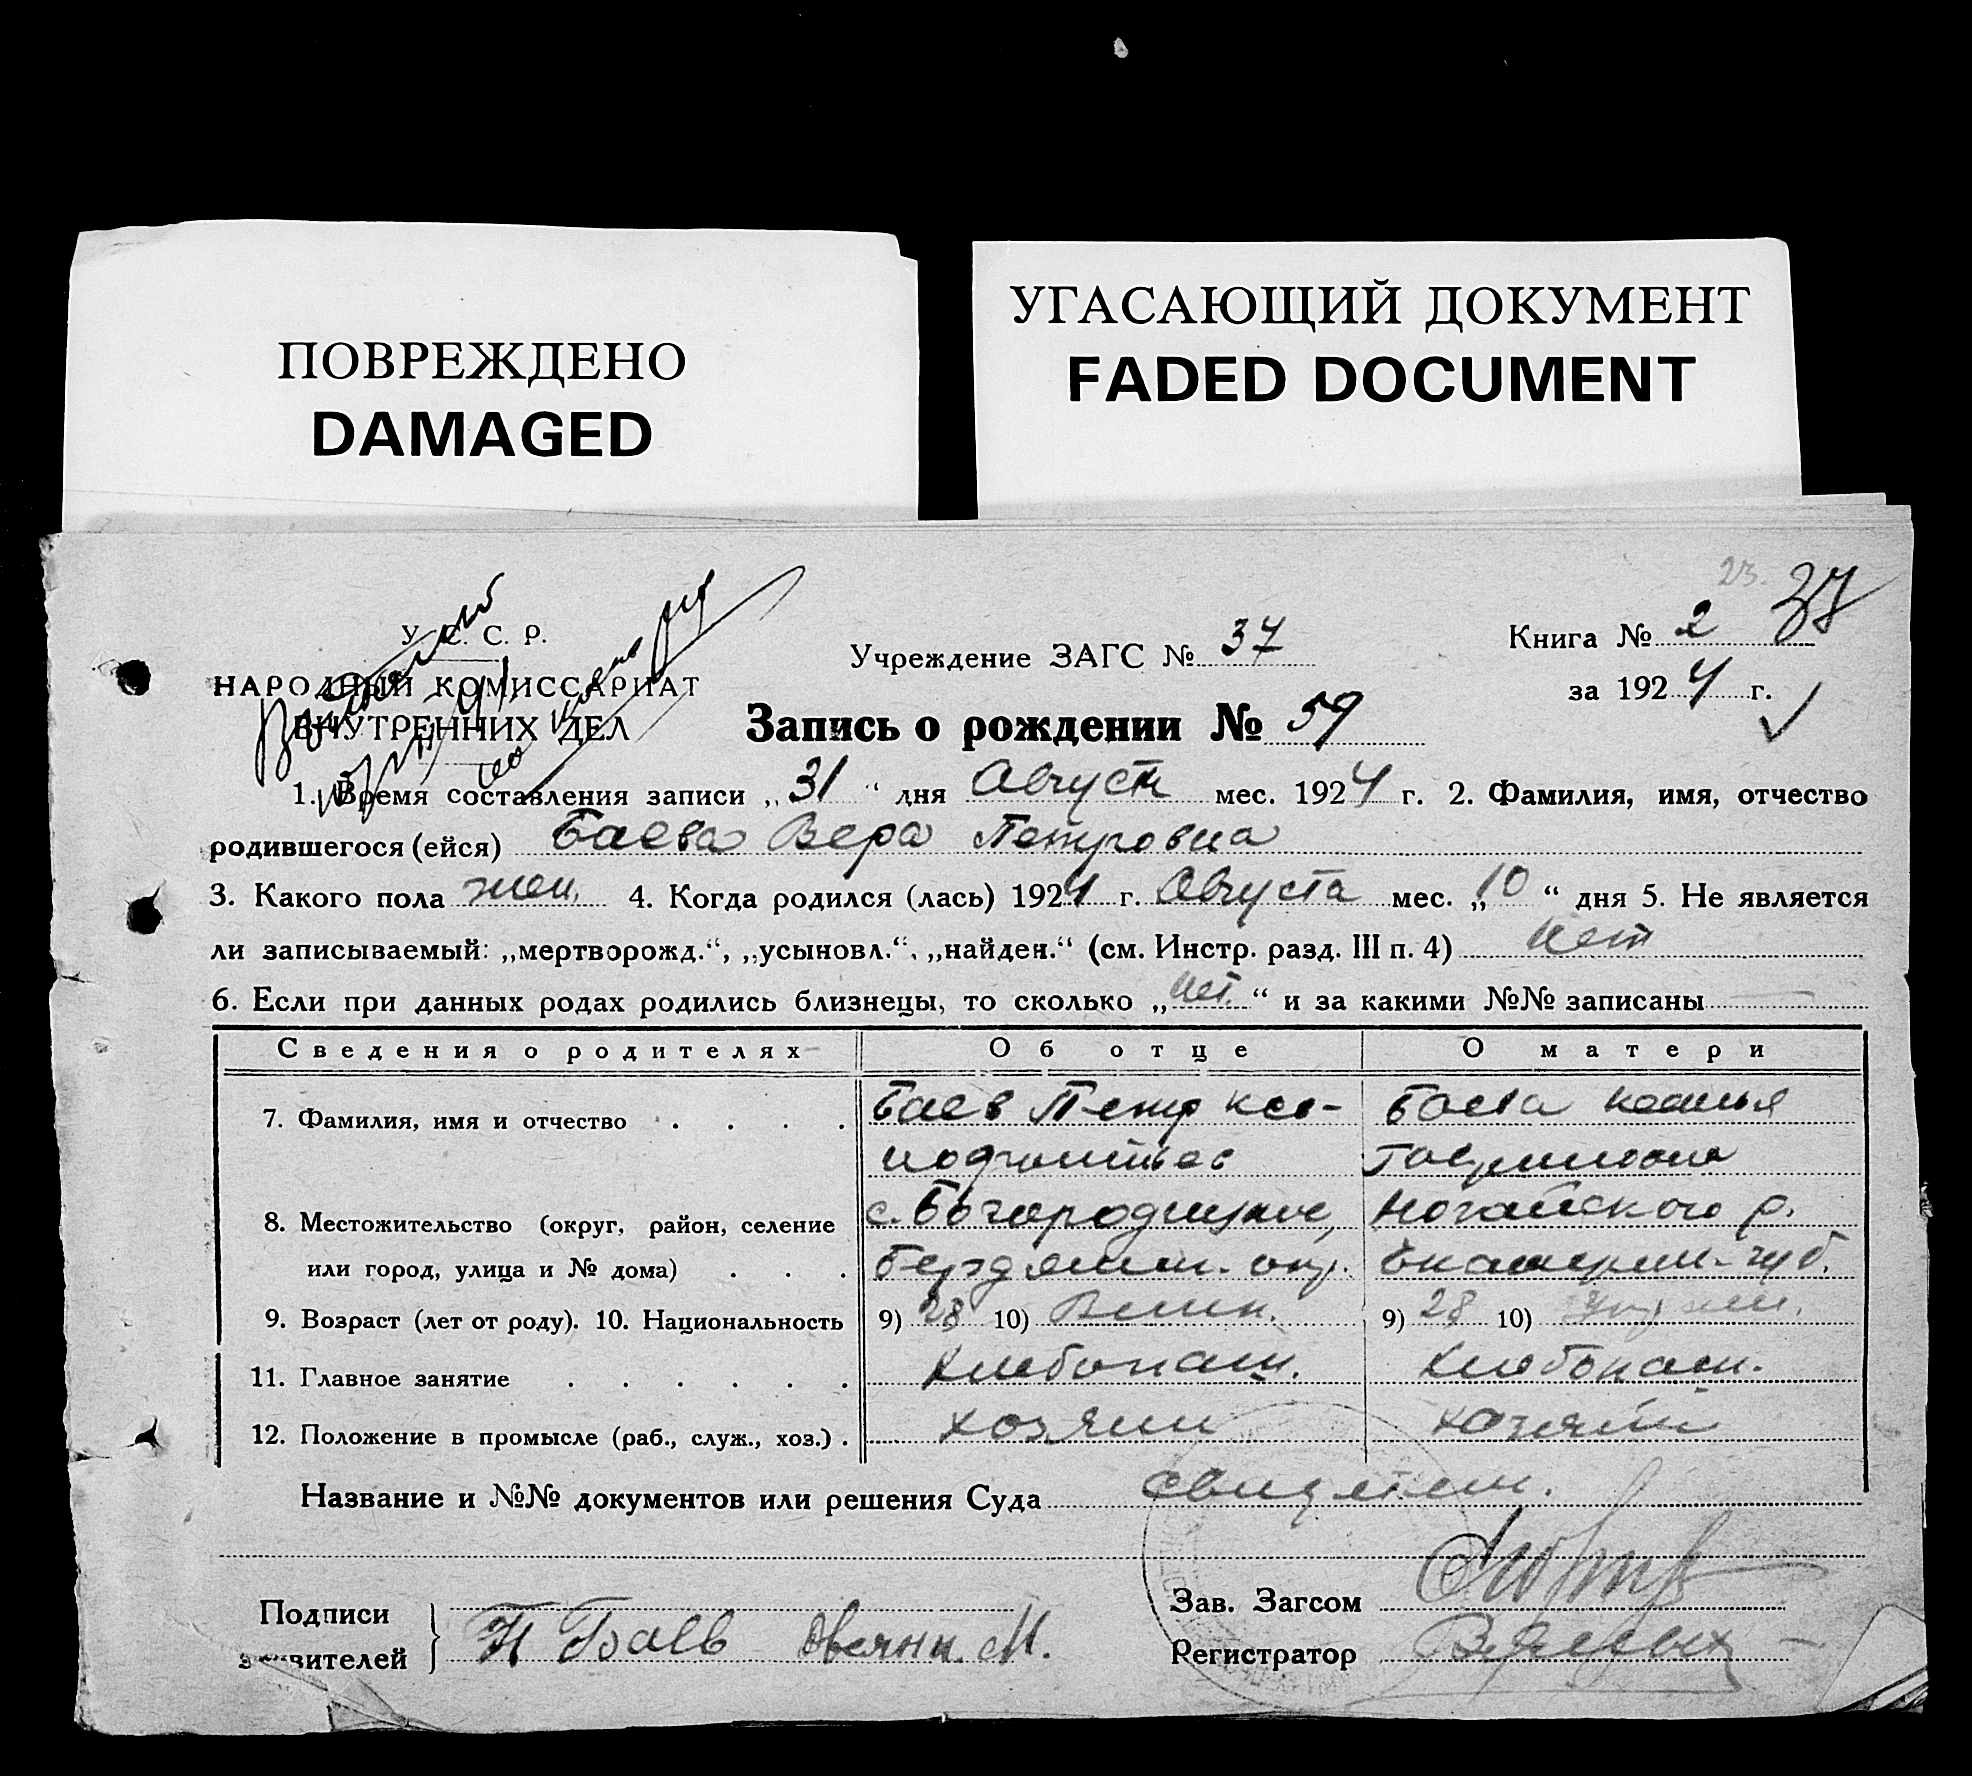 ПОВРЕЖДЕНО
DAMAGED
УГАСАЮЩИЙ ДОКУМЕНТ
FADED DOCUMENT
23. 37
У. С. С. Р.
НАРОДНЫЙ КОМИССАРИАТ
ВНУТРЕННИХ ДЕЛ
Учреждение ЗАГС № 37
Книга № 2
за 1924 г.
Запись о рождении № 59
1. Время составления записи „31“ дня Август мес. 1924 г. 2. Фамилия, имя, отчество
родившегося (ейся) Баева Вера Петровна
3. Какого пола жен. 4. Когда родился (лась) 1924 г. Августа мес. „10“ дня 5. Не является
ли записываемый: „мертворожд.“, „усыновл.“, „найден.“ (см. Инстр. разд. III п. 4) Нет
6. Если при данных родах родились близнецы, то сколько „нет.“ и за какими №№ записаны —
Сведения о родителях Об отце О матери
7. Фамилия, имя и отчество Баев Петр Баева
8. Местожительство (округ, район, селение с. Ногайского р.
или город, улица и № дома) Бердянск. окр. Екатерин. губ.
9. Возраст (лет от роду). 10. Национальность 9) 28 10) 9) 28 10)
11. Главное занятие Хлебопаш. Хлебопаш.
12. Положение в промысле (раб., служ., хоз.) хозяин
Название и №№ документов или решения Суда
Подписи
заявителей П Баев М.
Зав. Загсом
Регистратор